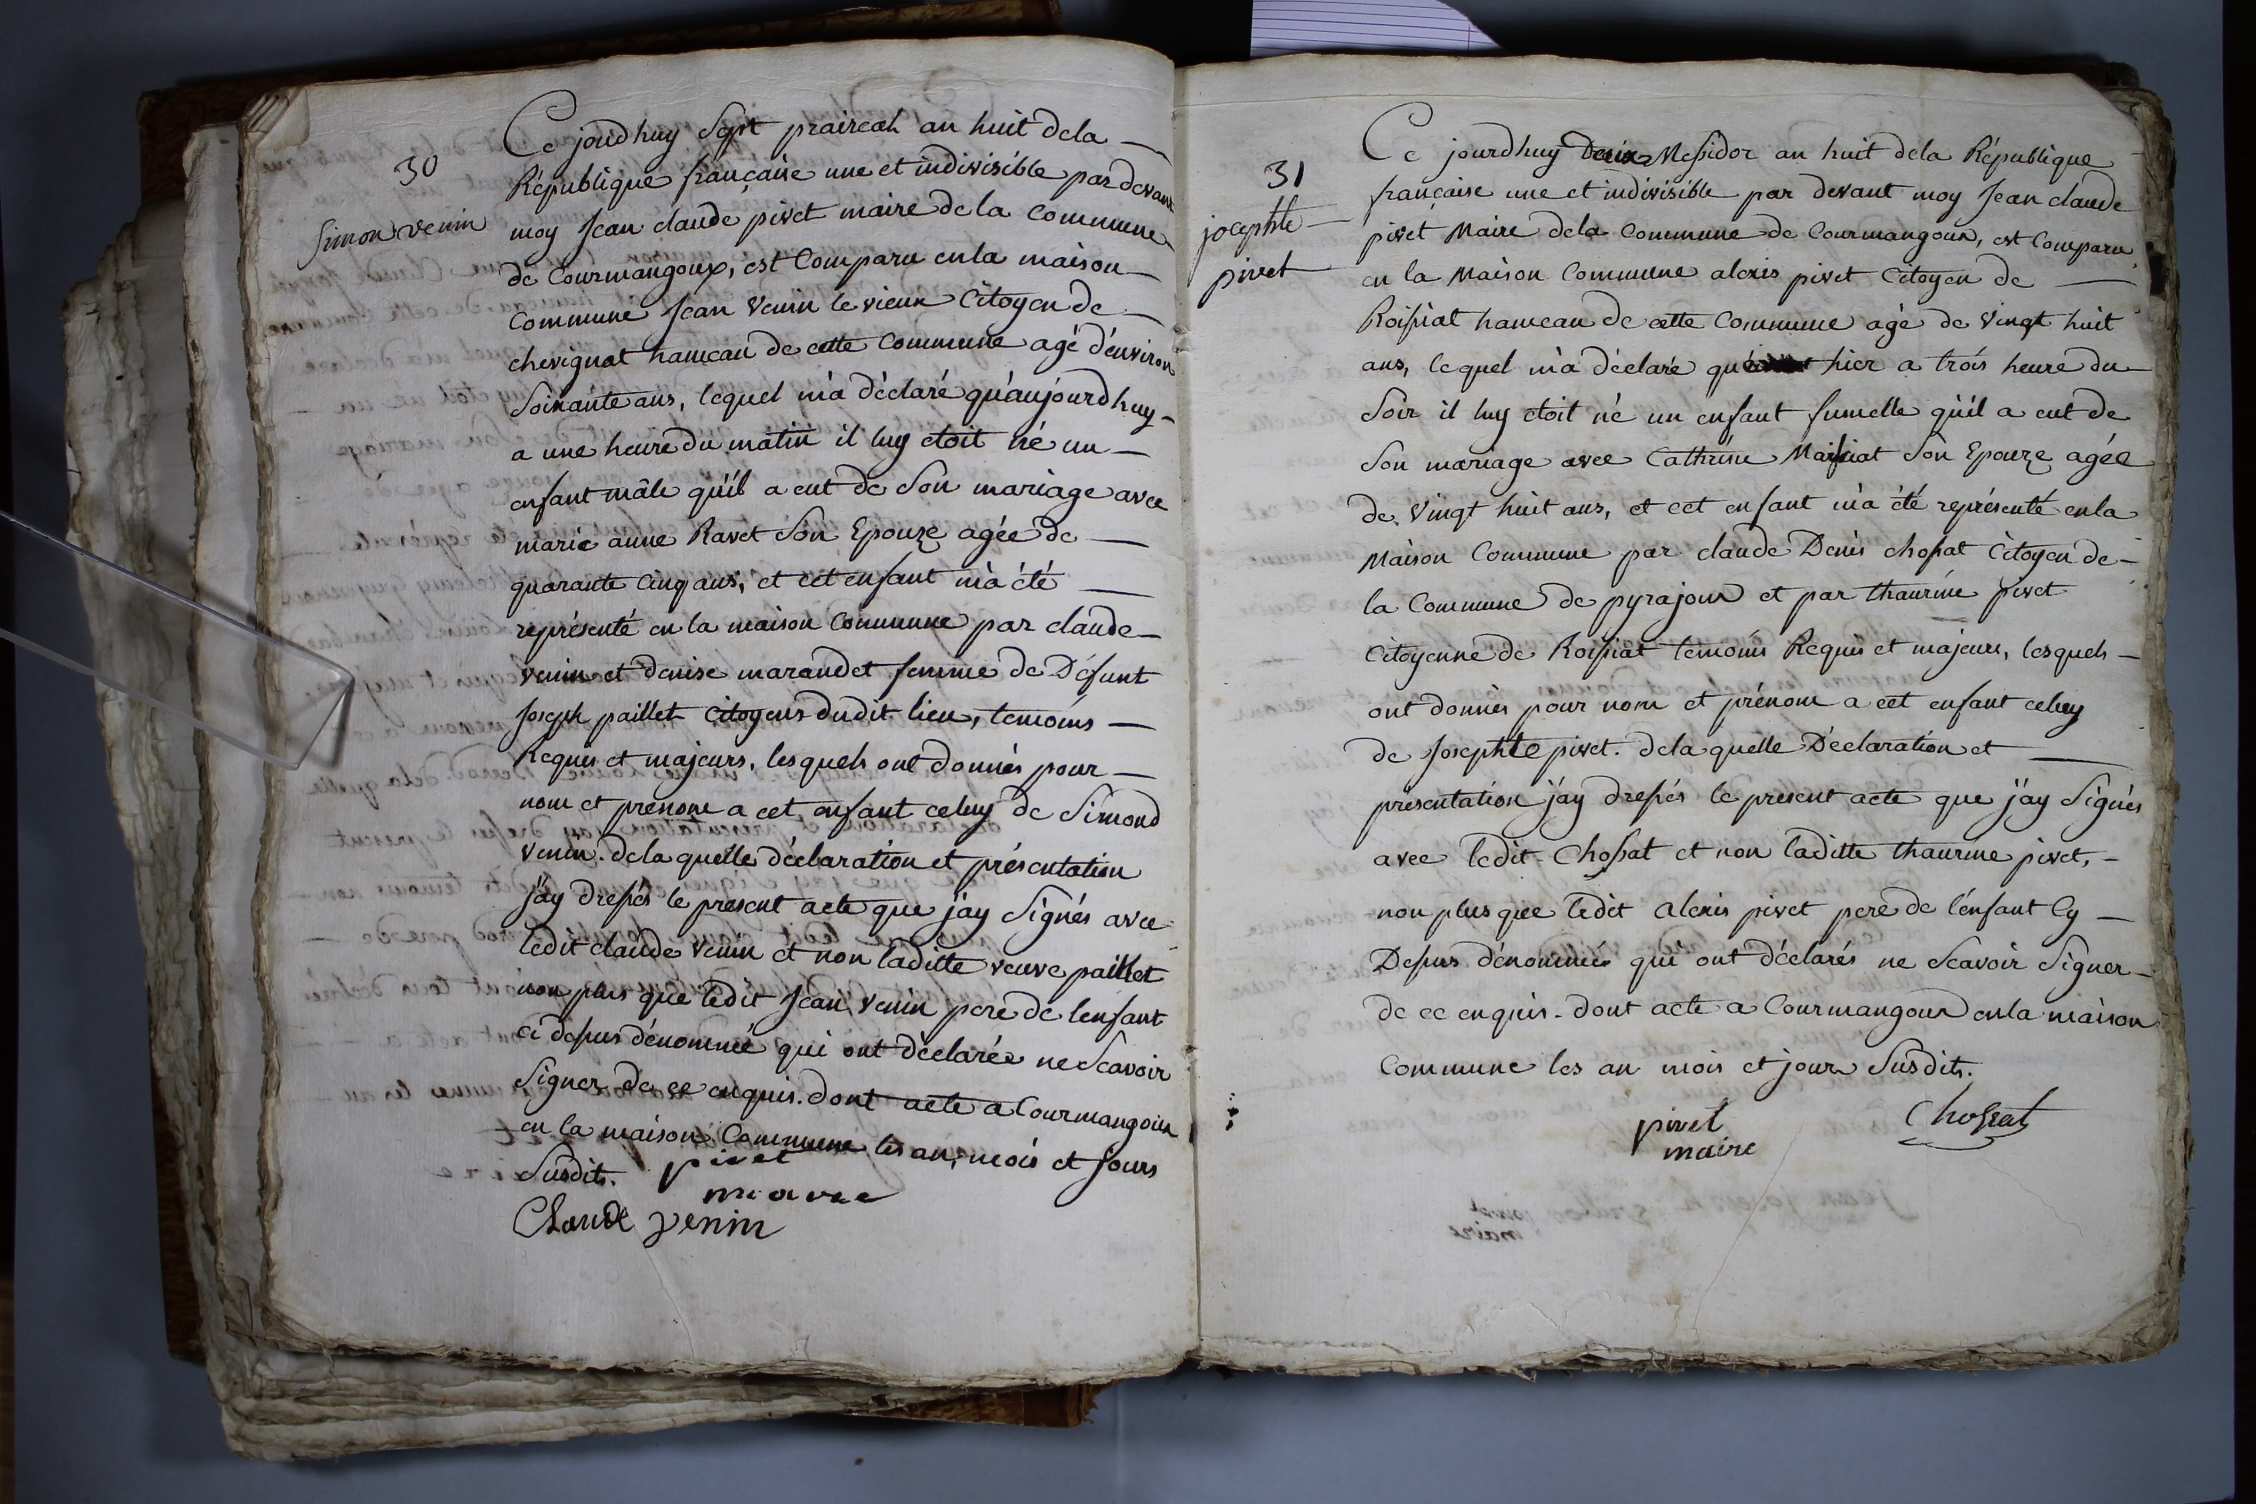 30
Simon venin
Ce jourdhuy Sept praireal an huit dela
République française une et indivisible par devant
moy Jean claude pivet maire dela commune
de Courmangoux, est Comparu enla maison
Commune Jean Venin le vieux Citoyen de
chevignat hameau de cette Commune agé d'environ
Soixante ans, lequel m'a déclaré qu'aujourdhuy
a une heure du matin il luy etoit né un
enfant mâle qu'il a eut de Son mariage avec
marie anne Ravet Son Epouze agée de
quarante cinq ans, et cet enfant m'a été
représenté en la maison Commune par claude
venin et denise marandet femme de Défunt
Joseph paillet Citoyens dudit lieu, temoins
Requis et majeurs, lesquels ont donnés pour
nom et prenom a cet enfant celuy de Simond
Venin. dela quelle déclaration et présentation
j'ay dressés le present acte que j'ay Signés avec
ledit claude venin et non laditte veuve paillet
non plus que ledit Jean Venin pere de lenfant
ci dessus dénommé qui ont déclarés ne Scavoir
Signer de ce enquis. dont acte a Courmangoux
en la maison Commune les an, mois et Jours
Susdits. pivet
maire
Claude venin
31
josephte
pivet
Ce jourdhuy Messidor an huit dela République
française une et indivisible par devant moy Jean claude
pivet Maire dela Commune de Courmangoux, est Comparu
en la Maison Commune alexis pivet Citoyen de
Roissiat hameau de cette Commune agé de Vingt huit
ans, lequel m'a déclaré qu' hier a trois heure du
Soir il luy etoit né un enfant fumelle qu'il a eut de
Son mariage avec Cathrine Maissiat Son Epouze agée
de Vingt huit ans, et cet enfant m'a été représenté enla
Maison Commune par claude Denis chossat Citoyen de
la Commune de pyrajoux et par thaurine pivet
Citoyenne de Roissiat temoins Requis et majeurs, lesquels
ont donnés pour nom et prénom a cet enfant celuy
de Josephte pivet. dela quelle Déclaration et
présentation j'ay dressés le present acte que j'ay Signés
avec ledit Chossat et non laditte thaurine pivet,
non plus que ledit alexis pivet pere de l'enfant Cy
Dessus dénommé qui ont déclarés ne Scavoir Signer
de ce enquis. dont acte a Courmangoux enla maison
Commune les an mois et jour Susdits.
pivet
maire
Chossat